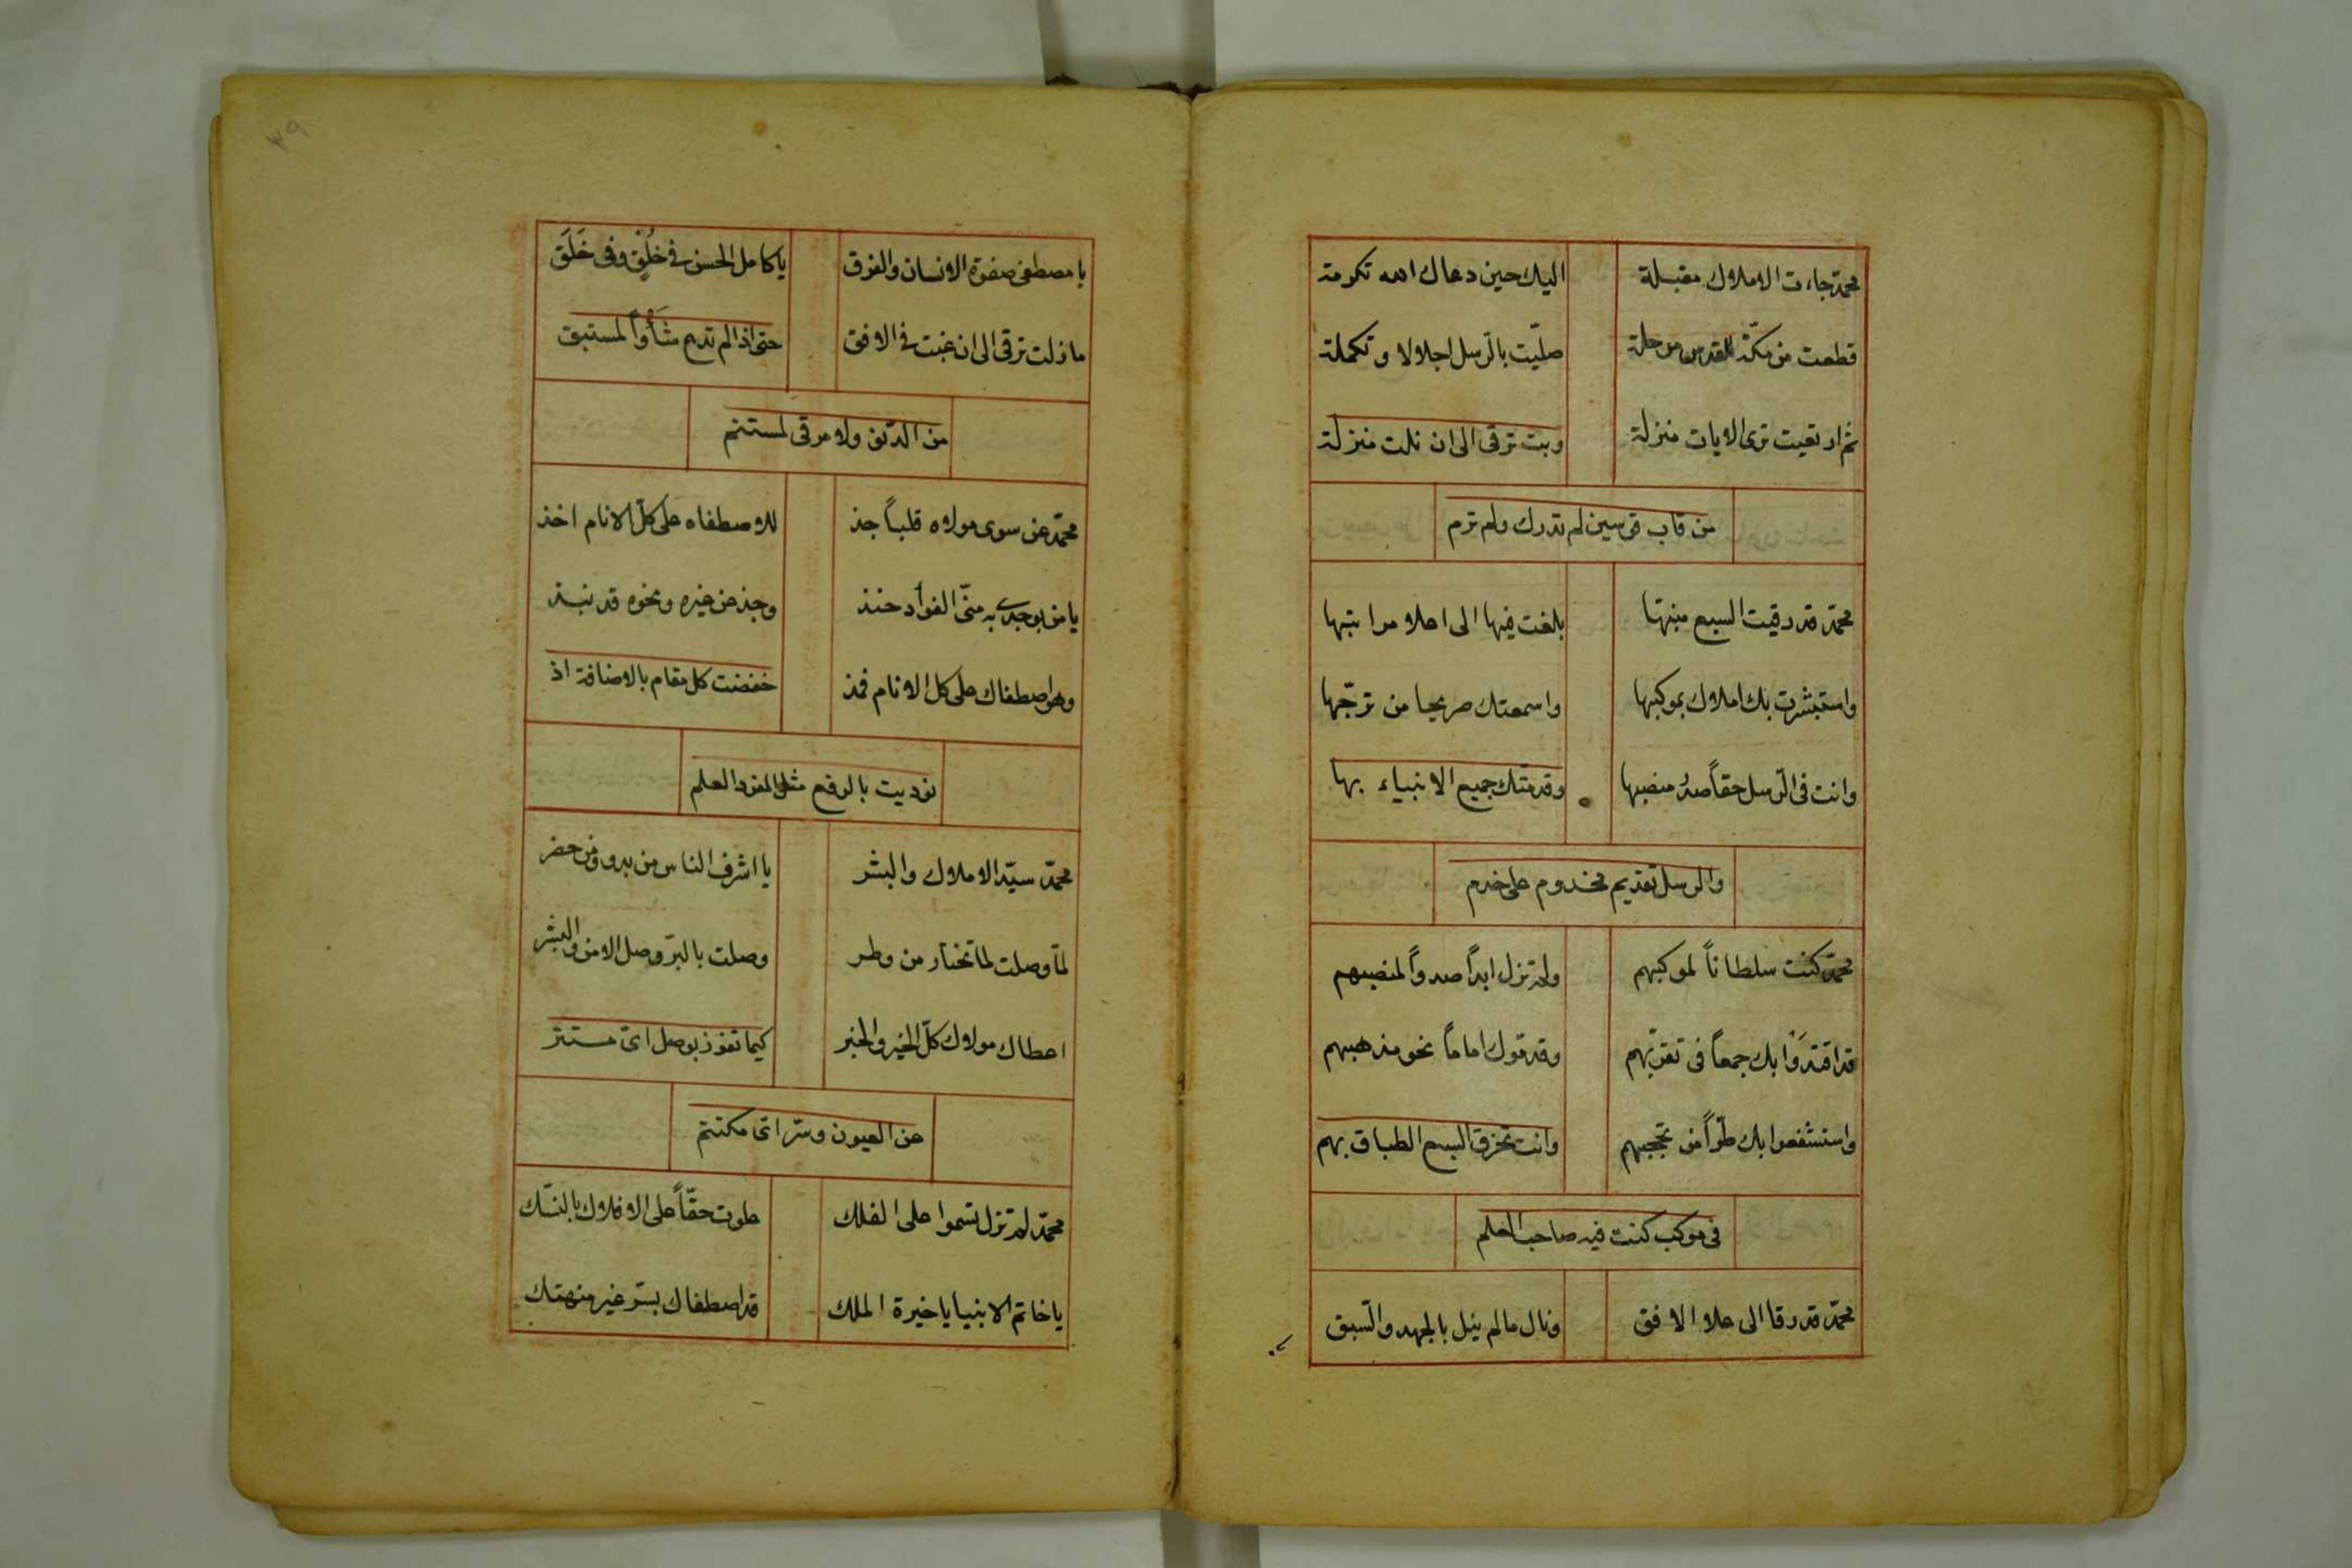 محمد جاءت الاملاك مقبلة اليك حين دعاك الله تكرمة
قطعت من مكّة للقدس مرحلة صلّيت بالرّسل اجلالا وتكملة
ثم ارتقيت ترى الايات منزلة وبت ترقى الى ان نلت منزلة
من قاب قوسين لم تدرك ولم ترم
محمّد قد رقيت السبع منتبها بلغت فيها الى اعلا مراتبها
واستبشرت بك املاك بموكبها واسمعتك صريحا من ترحّبها
وانت فى الرّسل حقاً صدر منصبها وقدمتك جميع الانبياء بها
والرسل تقديم مخدوم على خدم
محمّد كنت سلطاناً لموكبهم ولم تزل ابداً صدواً لمنصبهم
قد اقتدَوْا بك جمعاً فى تقربّهم وقدموك اماماً نحو مذهبهم
واستشفعوا بك طرّاً من تحجبهم وانت تخرق السبع الطباق بهم
فى موكب كنت فيه صاحب العلم
محمّد قد رقا الى علا الافق ونال مالم ينل بالجهد والسّبق
يا
٣٩
يا مصطفى صفوة الانسان والفرق يا كامل الحسن فى خُلُقٍ وفى خَلَق
مازلت ترقى الى ان غبت فى الافق حتى اذا لم تدع شَأْواً لمستبق
من الدّنو ولا مرقى لمستنم
محمّد عن سوى مولاه قلباً جذ للاصطفاه على كلّ الانام اخذ
يا من بوجدى به منّى الفوأد حنذ وجذ عن غيره ونحوه قد نبذ
وهو اصطفاك على كل الانام فمذ خفضت كل مقام بالاضافة اذ
نوديت بالرفع مثل المفرد العلم
محمّد سيّد الاملاك والبشر يا اشرف الناس من بدو ومن حضر
لمّا وصلت لما تختار من وطر وصلت بالبرّ وصل الامن والبشر
اعطاك مولاك كلّ الخير والخبر كيما تفوز بوصل اىّ مستتر
عن العيون وسّر اىّ مكتتم
محمّد لم تزل تسموا على الفلك علوت حقّاً على الافلاك بالنسّك
يا خاتم الانبيا يا خيرة الملك قد اصطفاك بستر غير منهتك